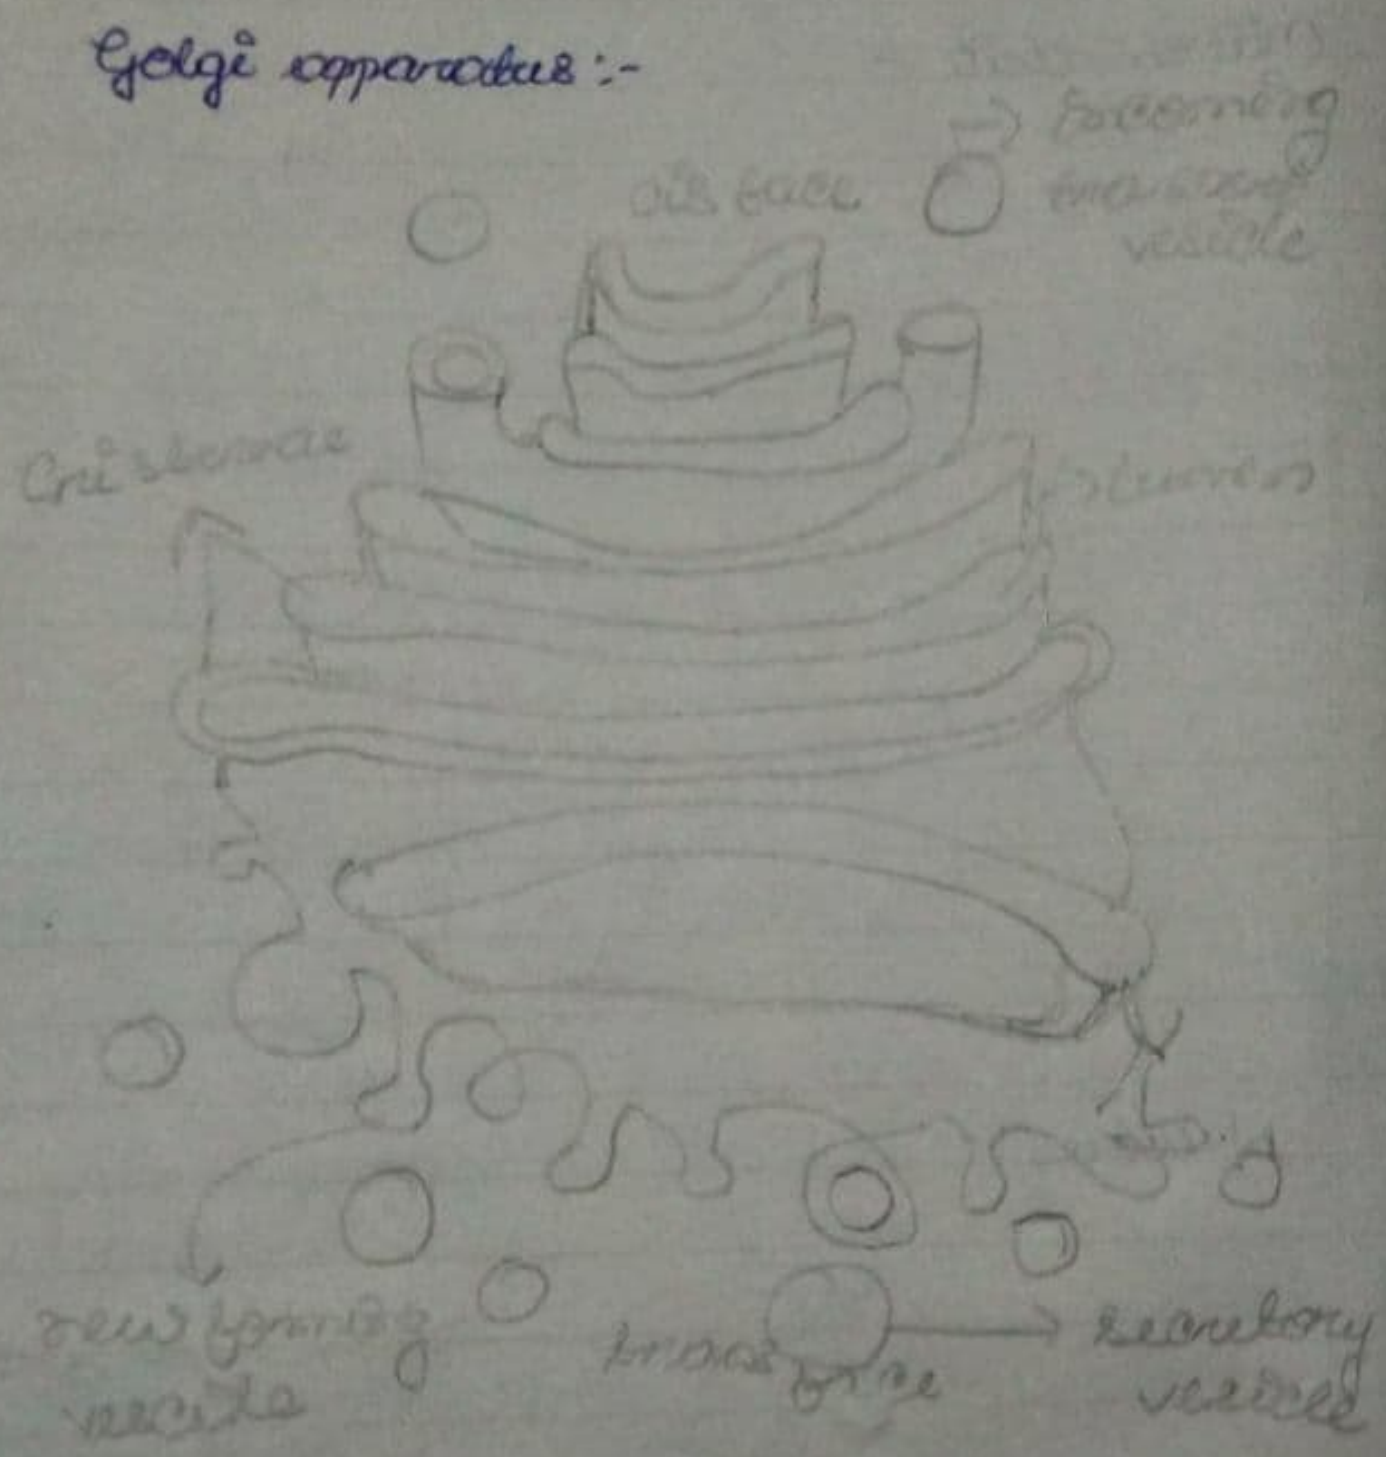 Golgi apparatus :-
cis face
Incoming
transport
vesicle
Cristernae
lumen
new forming
vecile
trans face
secretory
vesicle